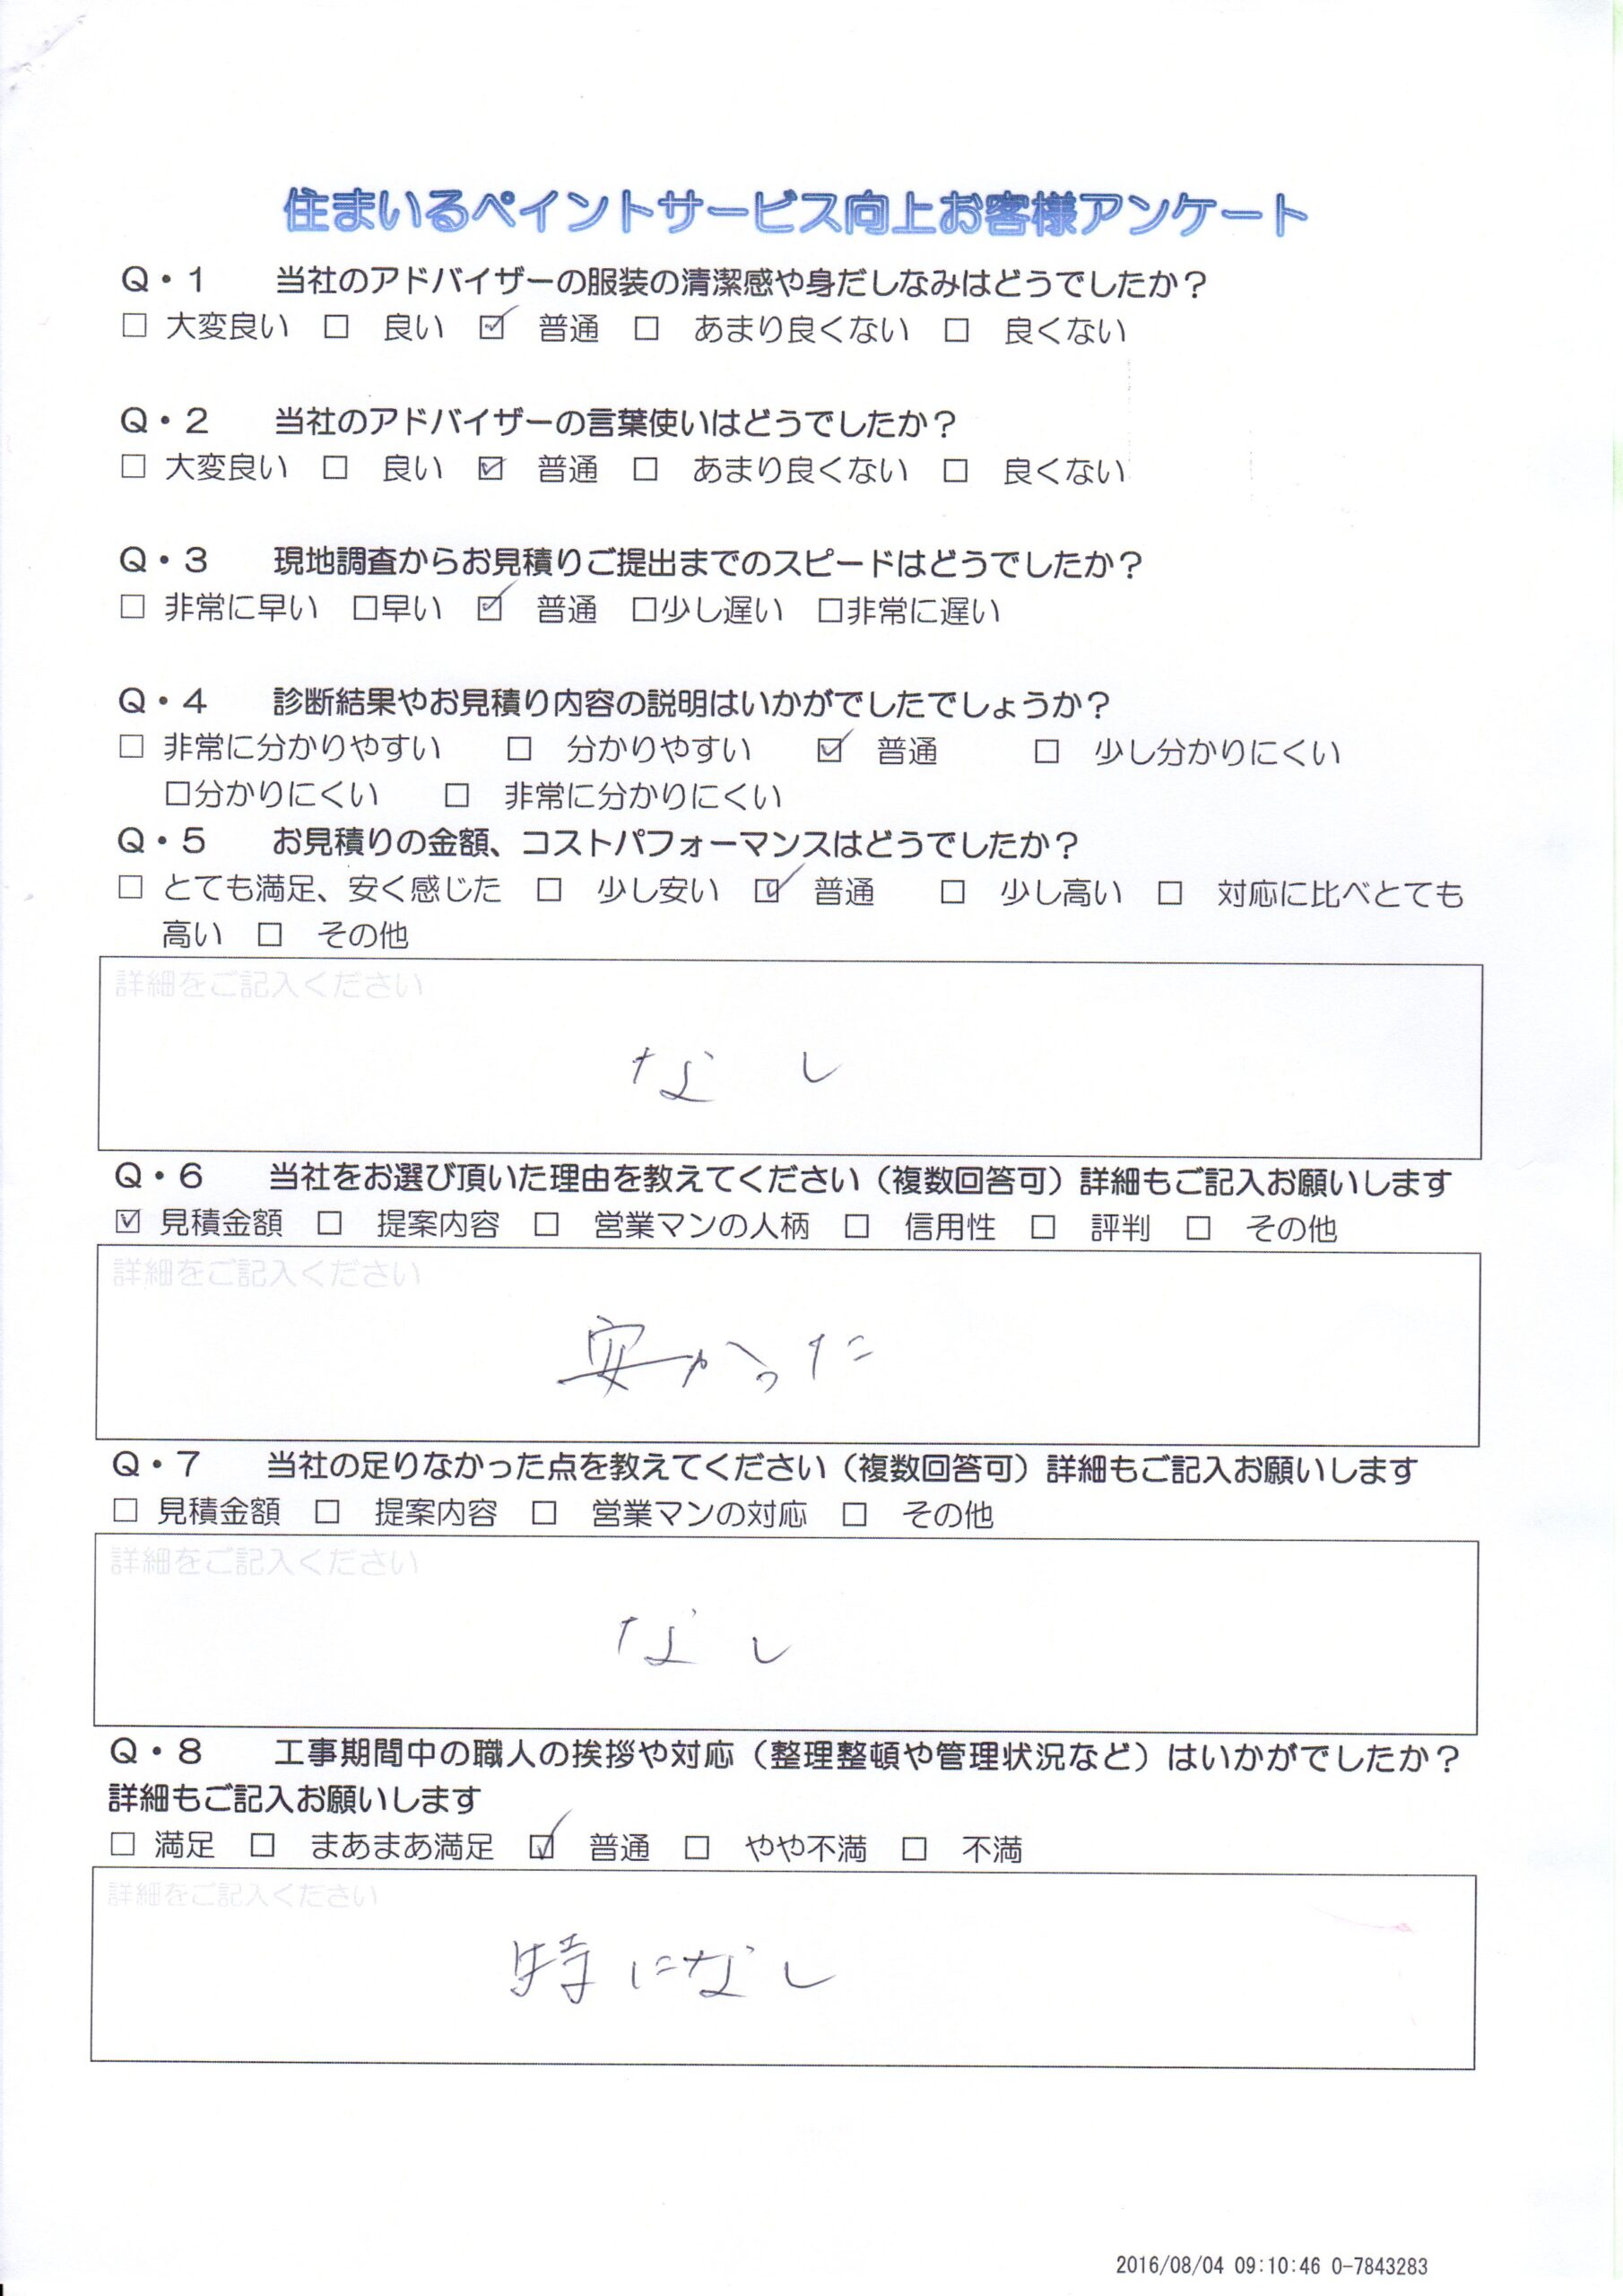 住まいるペイントサービス向上お客様アンケート
Q・1 当社のアドバイザーの服装の清潔感や身だしなみはどうでしたか？
□ 大変良い □ 良い ☑ 普通 □ あまり良くない □ 良くない
Q・2 当社のアドバイザーの言葉使いはどうでしたか？
□ 大変良い □ 良い ☑ 普通 □ あまり良くない □ 良くない
Q・3 現地調査からお見積りご提出までのスピードはどうでしたか？
□ 非常に早い □早い ☑ 普通 □少し遅い □非常に遅い
Q・4 診断結果やお見積り内容の説明はいかがでしたでしょうか？
□ 非常に分かりやすい □ 分かりやすい ☑ 普通 □ 少し分かりにくい
□分かりにくい □ 非常に分かりにくい
Q・5 お見積りの金額、コストパフォーマンスはどうでしたか？
□ とても満足、安く感じた □ 少し安い ☑ 普通 □ 少し高い □ 対応に比べとても
高い □ その他
詳細をご記入ください
なし
Q・6 当社をお選び頂いた理由を教えてください（複数回答可）詳細もご記入お願いします
☑ 見積金額 □ 提案内容 □ 営業マンの人柄 □ 信用性 □ 評判 □ その他
詳細をご記入ください
安かった
Q・7 当社の足りなかった点を教えてください（複数回答可）詳細もご記入お願いします
□ 見積金額 □ 提案内容 □ 営業マンの対応 □ その他
詳細をご記入ください
なし
Q・8 工事期間中の職人の挨拶や対応（整理整頓や管理状況など）はいかがでしたか？
詳細もご記入お願いします
□ 満足 □ まあまあ満足 ☑ 普通 □ やや不満 □ 不満
詳細をご記入ください
特になし
2016/08/04 09:10:46 0-7843283